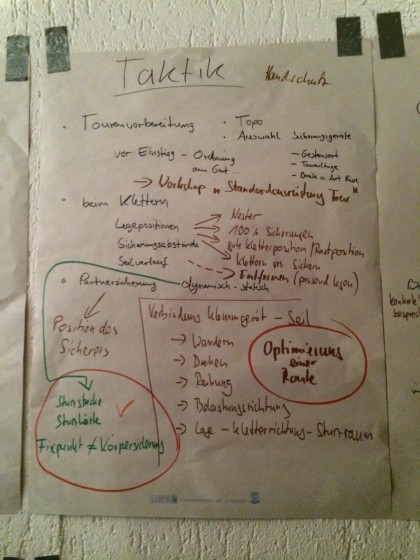 Taktik
Handschutz
• Tourenvorbereitung
• Topo
• Auswahl Sicherungsgeräte
vor Einstieg - Ordnung
am Gurt...
- Gesteinsart
- Tourenlänge
→ Workshop "Standardausrüstung Tour"
• beim Klettern
Legepositionen
→ Nester
→ 100% Sicherungen
Sicherungsabstände
gute Kletterposition/Rastposition
→ Klettern vs. Sichern
Seilverlauf
→ Entfernen (passend legen)
• Partnersicherung dynamisch - statisch
Position des
Sicherers
Verbindung Klemmgerät - Seil
→ Wandern
→ Drehen
→ Reibung
→ Belastungsrichtung
→ Lage - Kletterrichtung - Sturzraum
Optimierung
einer
Route
Sturzstrecke
Sturzhärte
Fixpunkt ≠ Körpersicherung